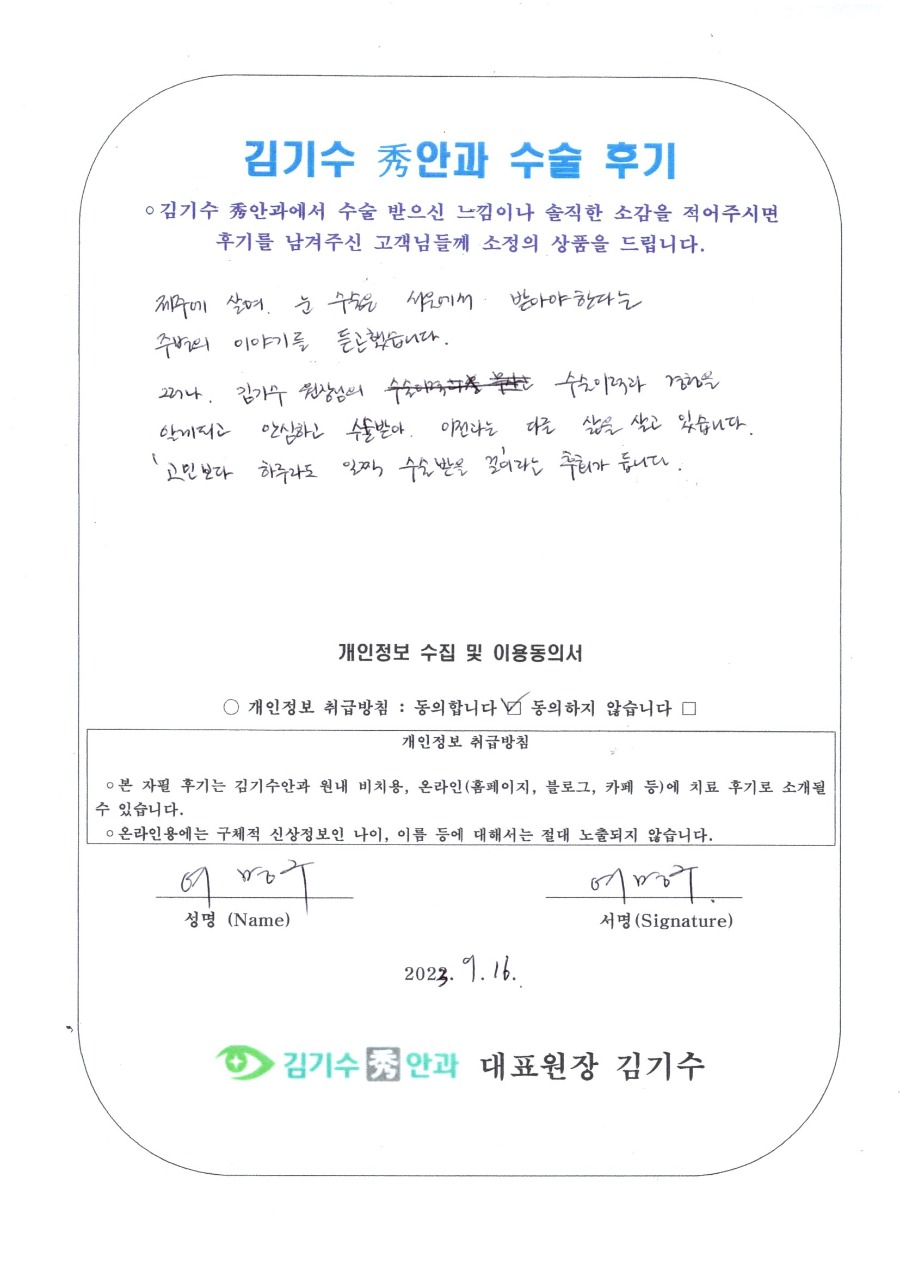 김기수 秀안과 수술 후기
○김기수 秀안과에서 수술 받으신 느낌이나 솔직한 소감을 적어주시면
후기를 남겨주신 고객님들께 소정의 상품을 드립니다.
제주에 살며, 눈 수술은 서울에서 받아야한다는
주변의 이야기를 듣곤했습니다.
그러나, 김기수 원장님의 수술이력과 경험을
알게되고 안심하고 수술받아, 이전과는 다른 삶을 살고 있습니다.
'고민보다 하루라도 일찍 수술받을 걸'이라는 후회가 듭니다.
개인정보 수집 및 이용동의서
○ 개인정보 취급방침 : 동의합니다 ☑ 동의하지 않습니다 □
개인정보 취급방침
○본 자필 후기는 김기수안과 원내 비치용, 온라인(홈페이지, 블로그, 카페 등)에 치료 후기로 소개될
수 있습니다.
○온라인용에는 구체적 신상정보인 나이, 이름 등에 대해서는 절대 노출되지 않습니다.
성명 (Name) 서명(Signature)
2023. 9. 16.
김기수 秀 안과 대표원장 김기수